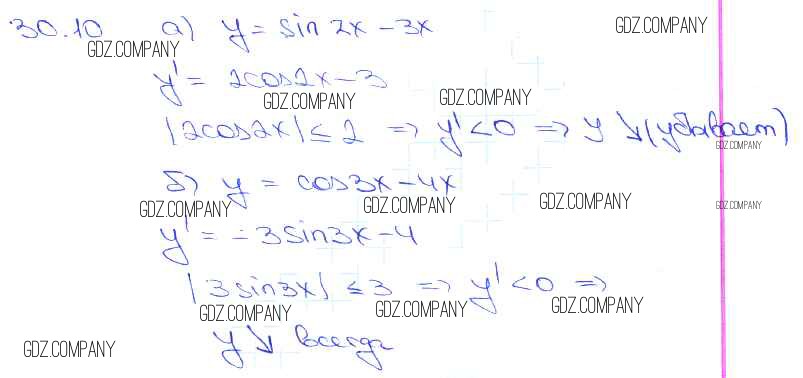 30.10 а) y = sin 2x – 3x
GDZ.COMPANY GDZ.COMPANY
y' = 2cos2x – 3
GDZ.COMPANY GDZ.COMPANY
|2cos2x| ≤ 2 => y' < 0 => y ↘ (убывает)
GDZ.COMPANY
б) y = cos3x – 4x
GDZ.COMPANY GDZ.COMPANY GDZ.COMPANY GDZ.COMPANY
y' = –3sin3x – 4
|3sin3x| ≤ 3 => y' < 0 =>
GDZ.COMPANY GDZ.COMPANY GDZ.COMPANY
y ↘ всегда
GDZ.COMPANY